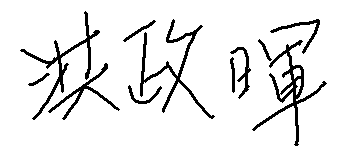 洪政暉